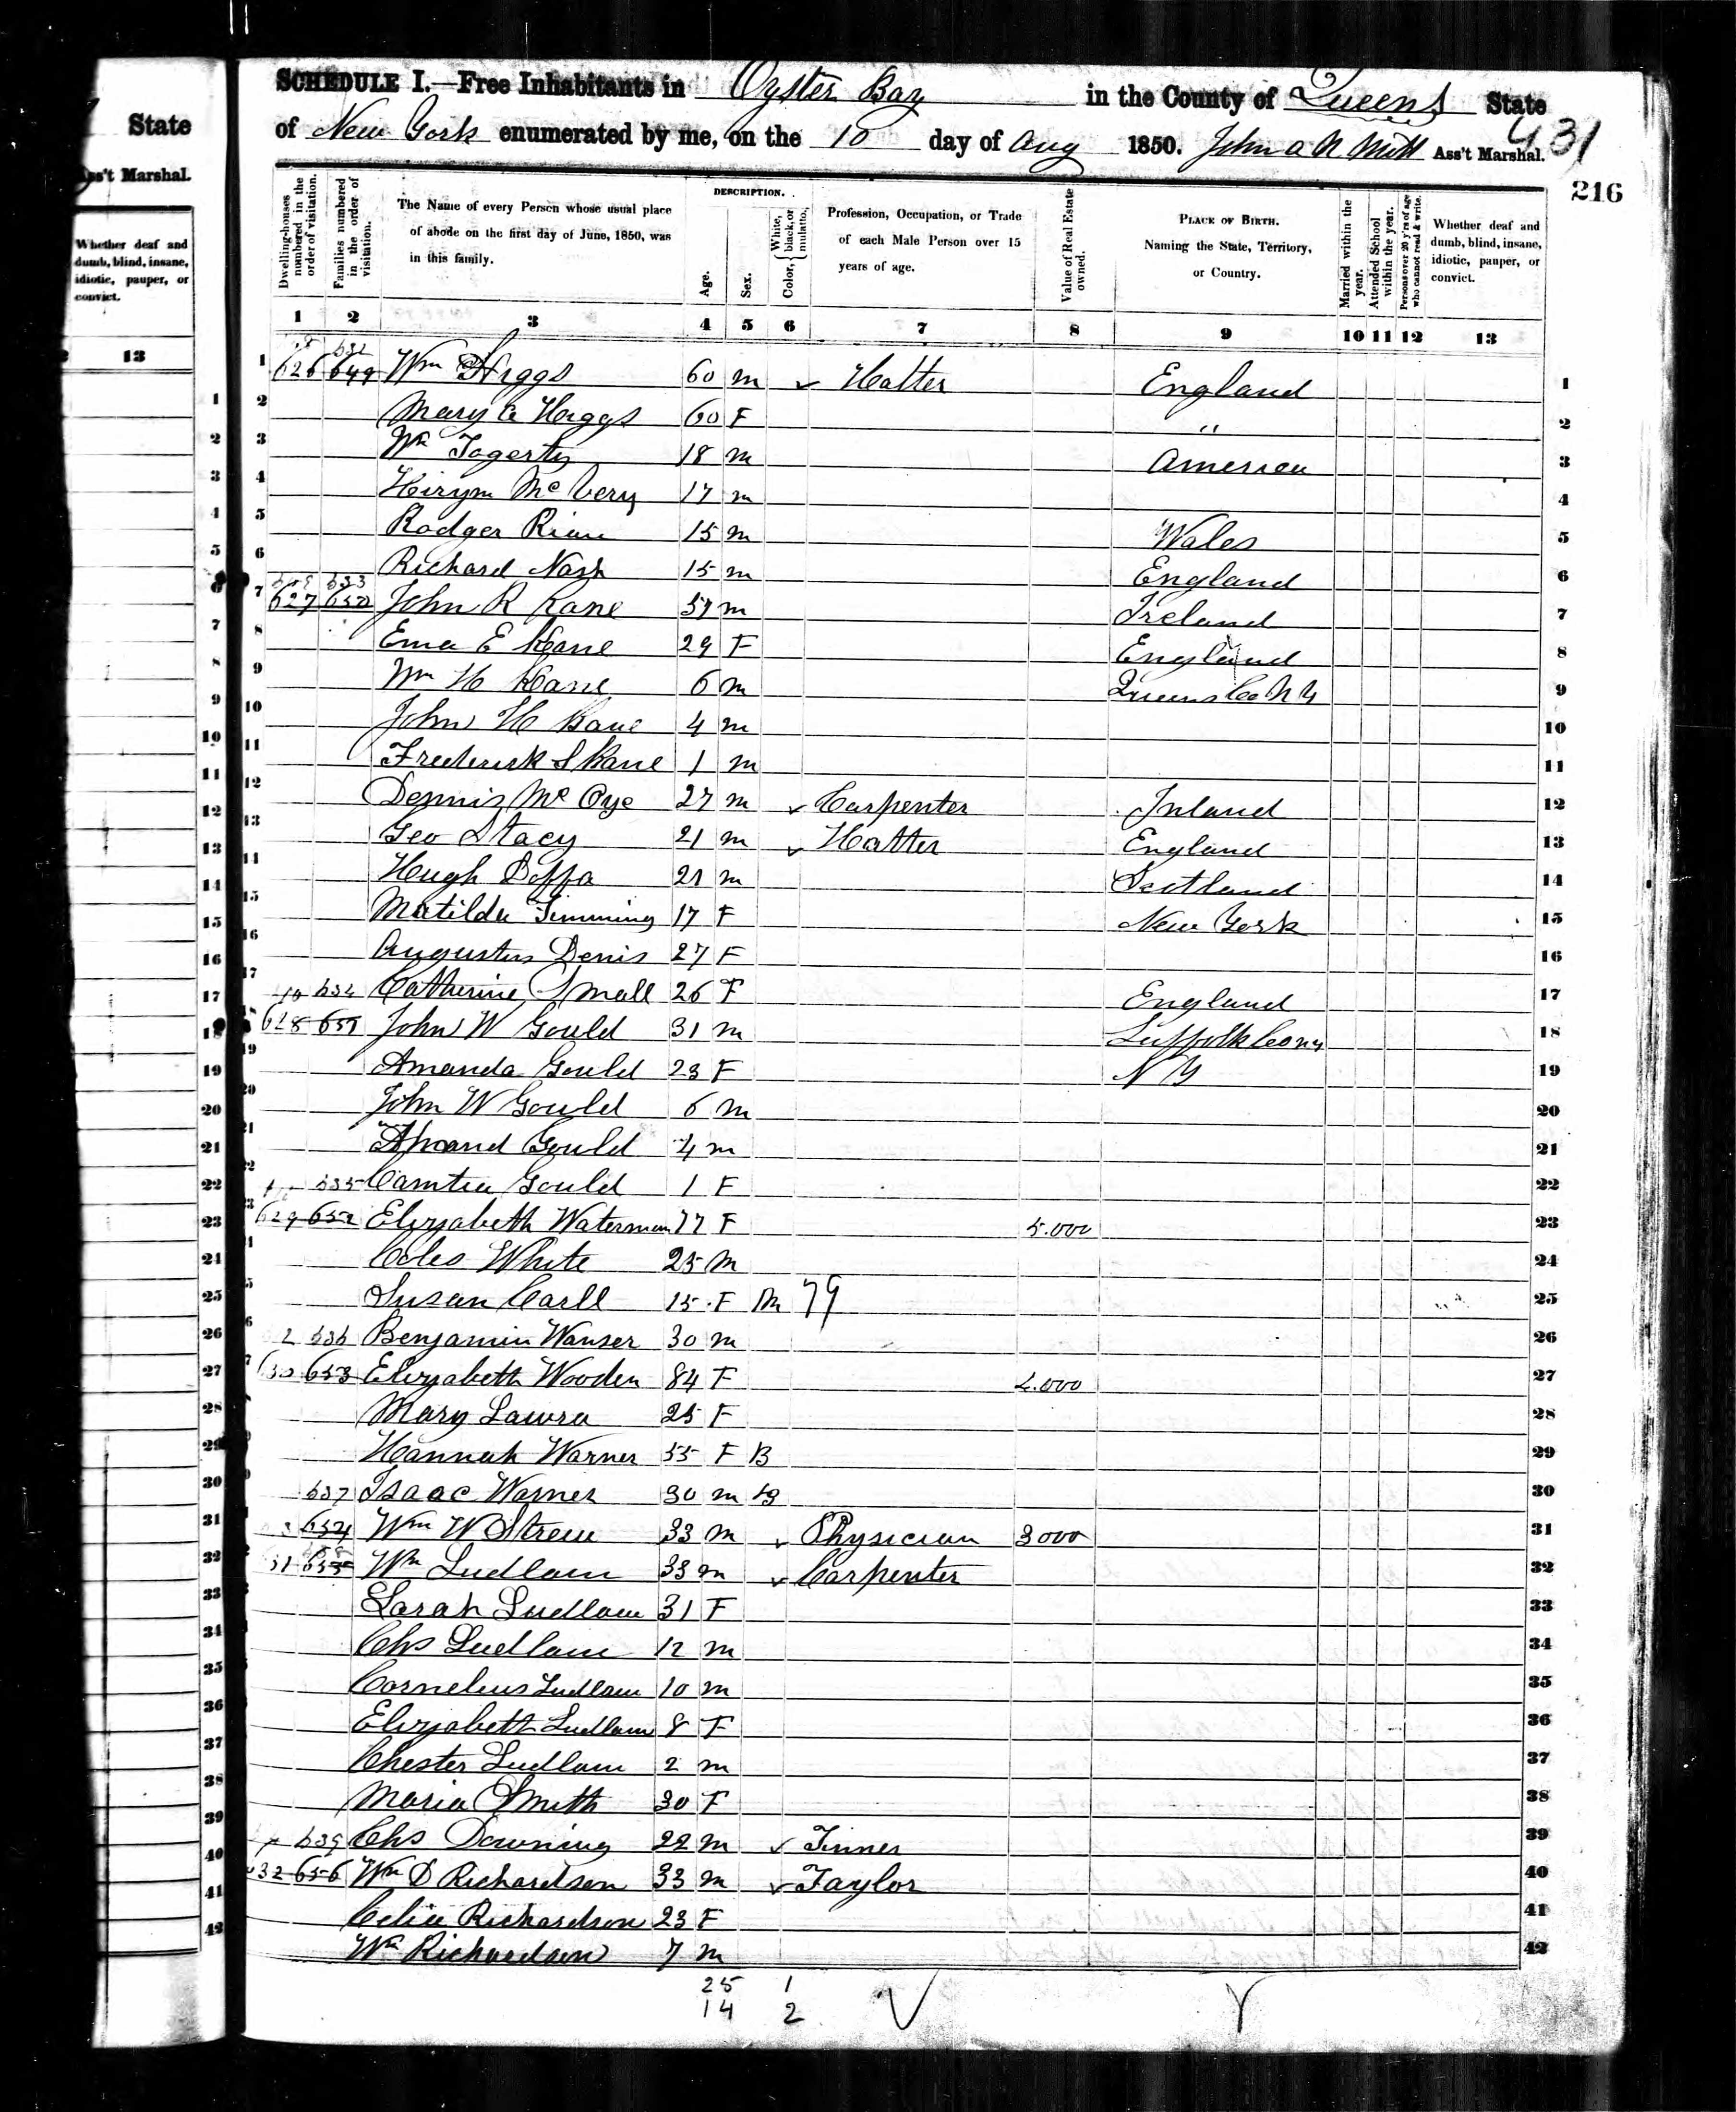 State
Ass't Marshal.
Whether deaf and
dumb, blind, insane,
idiotic, pauper, or
convict.
13
SCHEDULE I.—Free Inhabitants in Oyster Bay in the County of Queens State
of New York enumerated by me, on the 10 day of Aug 1850. John Ass't Marshal.
431
216
Dwelling-houses numbered in the order of visitation.
Families numbered in the order of visitation.
The Name of every Person whose usual place of abode on the first day of June, 1850, was in this family.
DESCRIPTION.
Age.
Sex.
Color, { White, black, or mulatto.
Profession, Occupation, or Trade of each Male Person over 15 years of age.
Value of Real Estate owned.
PLACE OF BIRTH. Naming the State, Territory, or Country.
Married within the year.
Attended School within the year.
Persons over 20 y'rs of age who cannot read & write.
Whether deaf and dumb, blind, insane, idiotic, pauper, or convict.
1 2 3 4 5 6 7 8 9 10 11 12 13
1 626 649 Wm Higgs 60 m Hatter England 1
2 Mary Higgs 60 F " 2
3 Wm Fogerty 18 m America 3
4 Hirym McVery 17 m 4
5 Rodger Rian 15 m Wales 5
6 Richard Nash 15 m England 6
7 627 650 John R Kane 37 m Ireland 7
8 Ema E Kane 29 F England 8
9 Wm H Kane 6 m Queens Co N Y 9
10 John H Kane 4 m 10
11 Frederick S Kane 1 m 11
12 Dennis Mc Oye 27 m Carpenter Ireland 12
13 Geo Stacy 21 m Hatter England 13
14 Hugh 21 m Scotland 14
15 Matilda Timming 17 F New York 15
16 Augustus Denis 27 F 16
17 Catherine Small 26 F England 17
18 628 651 John W Gould 31 m Suffolk Co NY 18
19 Amanda Gould 23 F N Y 19
20 John W Gould 6 m 20
21 Gould 4 m 21
22 Gould 1 F 22
23 629 652 Elizabeth Waterman 77 F 5.000 23
24 Coles White 25 m 24
25 Susan Carll 15 F M 79 25
26 Benjamin Wanser 30 m 26
27 630 653 Elizabeth Wooden 84 F 4.000 27
28 Mary Lawra 25 F 28
29 Hannah Warner 55 F B 29
30 Isaac Warner 30 m B 30
31 654 Wm W Strew 33 m Physician 3000 31
32 31 655 Wm Ludlam 33 m Carpenter 32
33 Sarah Ludlam 31 F 33
34 Chs Ludlam 12 m 34
35 Cornelius Ludlam 10 m 35
36 Elizabeth Ludlam 8 F 36
37 Chester Ludlam 2 m 37
38 Maria Smith 30 F 38
39 Chs Downing 22 m Tinner 39
40 632 656 Wm D Richardson 33 m Taylor 40
41 Celia Richardson 23 F 41
42 Wm Richardson 7 m 42
25 1
14 2